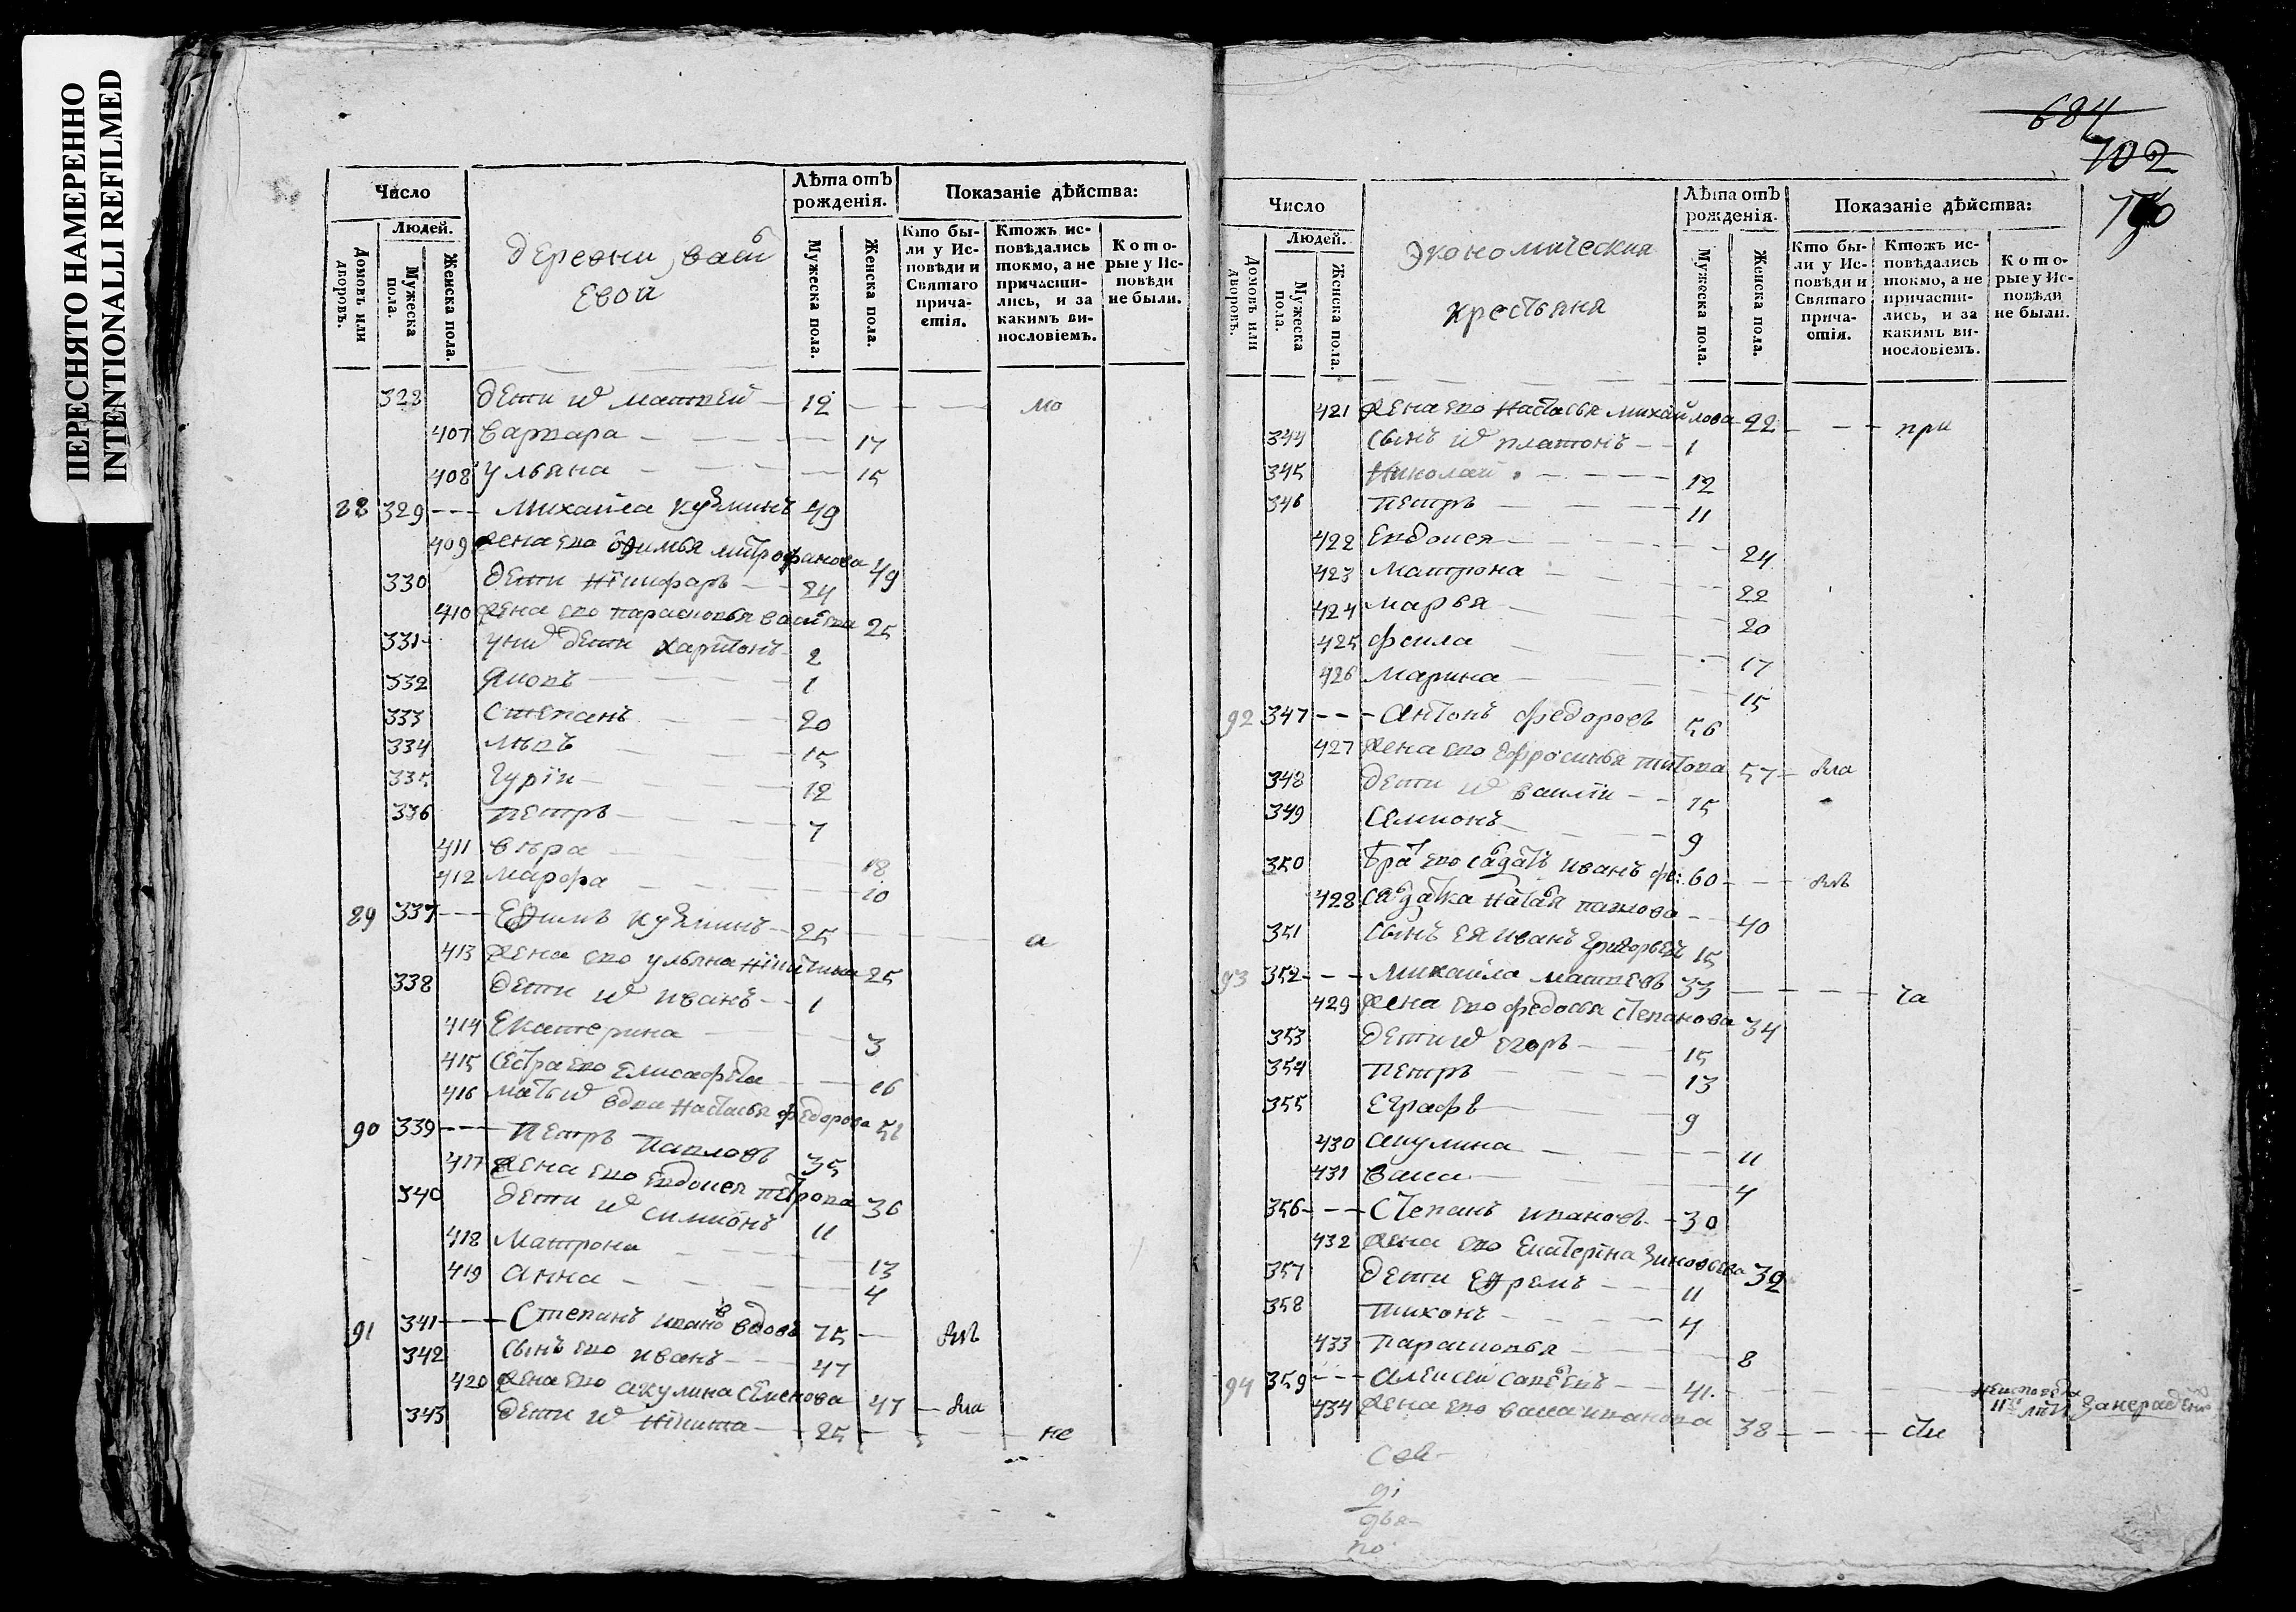 ПЕРЕСНЯТО НАМЕРЕННО
INTENTIONALLI REFILMED
Число
Людей.
Домовъ или дворовъ.
Мужеска пола.
Женска пола.
деревни васил
евой
Лѣта отъ рожденія.
Мужеска пола.
Женска пола.
Показаніе дѣйства:
Кто бы-
ли у Ис-
повѣди и
Святаго
прича-
стія.
Ктожъ ис-
повѣдались
токмо, а не
причасти-
лись, и за
какимъ ви-
нословіемъ.
Кото-
рые у Ис-
повѣди
не были.
328 дети ихъ матвей 12 мо
407 варвара 17
408 ульяна 15
88 329 Михайла кузминъ 49
409 жена ево митрофанова 49
330 дети никифоръ 24
410 жена ево парасковья 25
331 дети харитонъ 2
332 яковъ 1
333 степанъ 20
334 левъ 15
335 гурiи 12
336 петръ 7
411 вера 18
412 марфа 10
89 337 Ефимъ кузминъ 25 а
413 жена ево ульяна никитина 25
338 дети ихъ иванъ 1
414 екатерина 3
415 сестра ево елисафета 16
416 мать ихъ вдова настасья федорова 51
90 339 петръ павловъ 35
417 жена ево евдокея петрова 36
340 дети ихъ симионъ 11
418 матрона 13
419 анна 4
91 341 Степанъ ивановъ вдовъ 75 был
342 сынъ ево иванъ 47
420 жена ево акулина семенова 47 была
343 дети ихъ никита 25 не
684
702
Число
Людей.
Домовъ или дворовъ.
Мужеска пола.
Женска пола.
Экономическия
крестьяня
Лѣта отъ рожденія.
Мужеска пола.
Женска пола.
Показаніе дѣйства:
Кто бы-
ли у Ис-
повѣди и
Святаго
прича-
стія.
Ктожъ ис-
повѣдались
токмо, а не
причасти-
лись, и за
какимъ ви-
нословіемъ.
Кото-
рые у Ис-
повѣди
не были.
421 жена ево настасья михайлова 22 при
344 сынъ ихъ платонъ 1
345 николай 12
346 петръ 11
422 евдокея 24
423 матрона 22
424 марья 20
425 фекла 17
426 марина 15
92 347 антонъ федоровъ 56
427 жена ево ефросинья титова 57 была
348 дети ихъ василiй 15
349 семионъ 9
350 братъ ево салдатъ иванъ фе: 60 был
428 салдатка наталья павлова 40
351 сынъ ея иванъ григорьевъ 15
93 352 михайла матвеевъ 33 ча
429 жена ево федосья степанова 34
353 дети ихъ егоръ 15
354 петръ 13
355 еграфъ 9
430 акулина 11
431 васса 4
356 степанъ ивановъ 30
432 жена ево екатерiна зиновьева 32
357 дети ефремъ 11
358 тихонъ 4
433 парасковья 8
94 359 алексей савельевъ 41 занерадение
434 жена ево васса иванова 38 сти